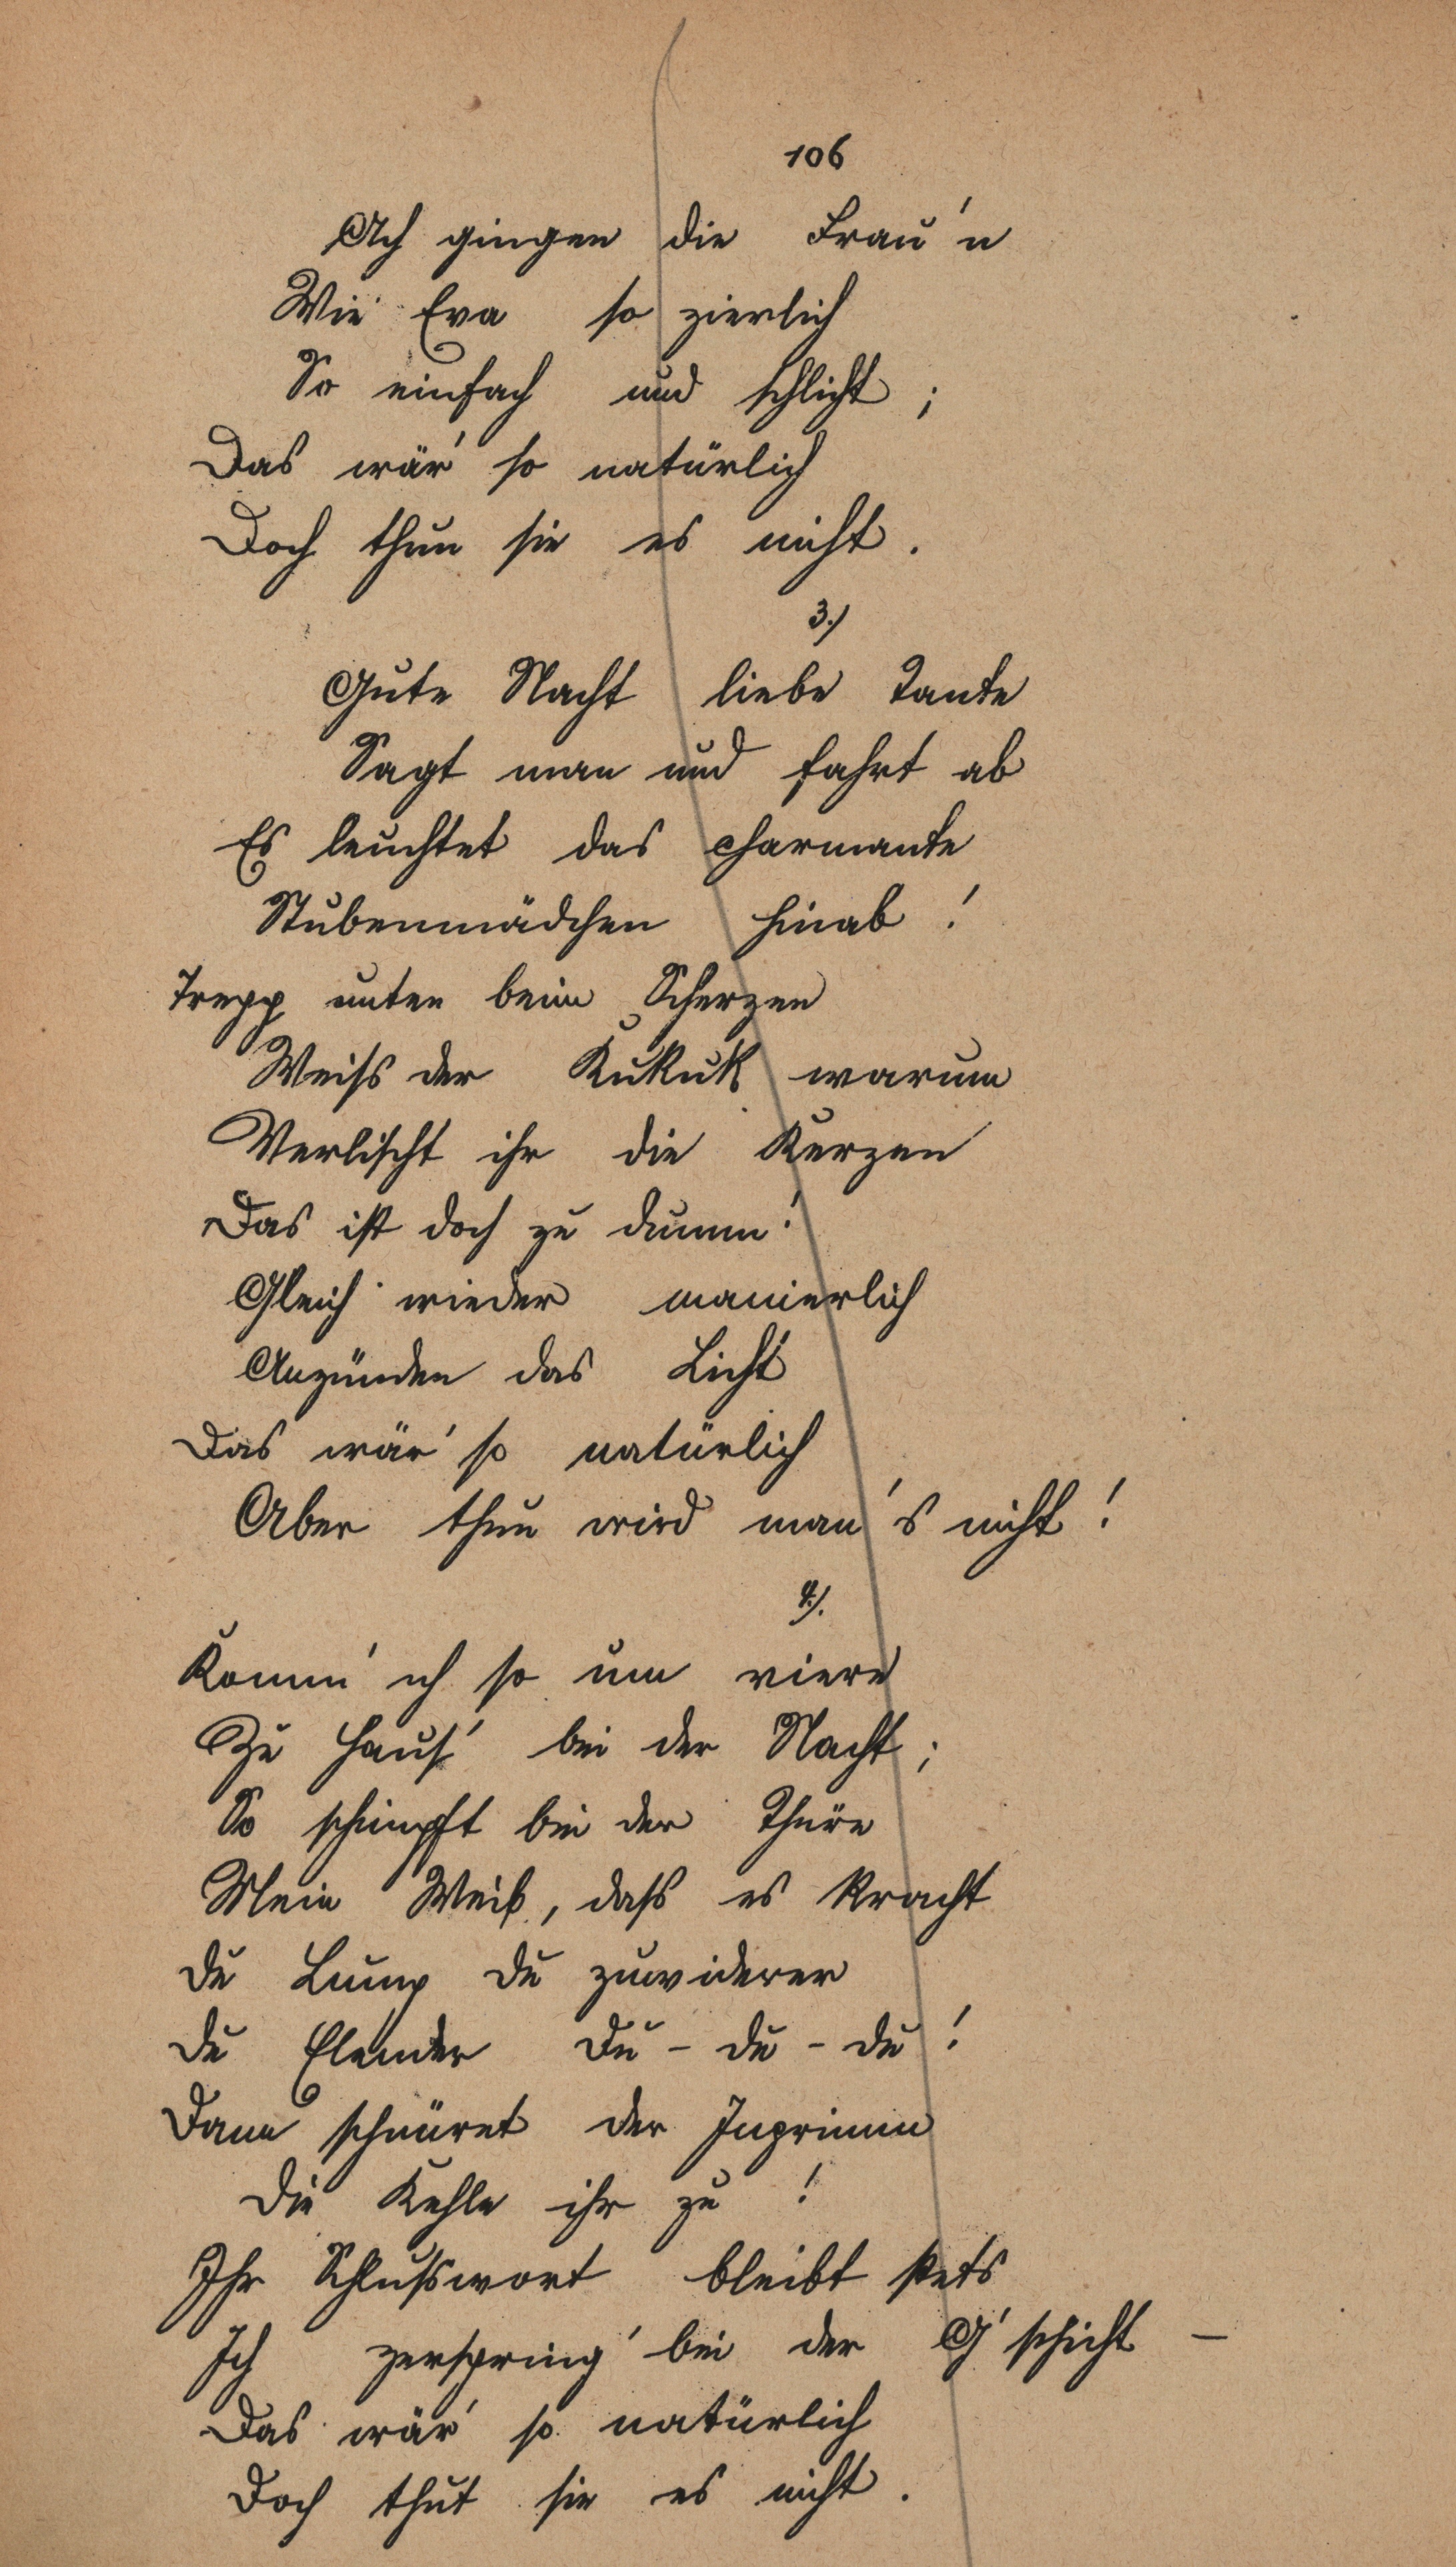 106
Ach gingen die Frau'n
Wie Eva so zierlich
So einfach und schlicht;
Das wär' so natürlich
Doch thun sie es nicht.
3.)
Gute Nacht liebe Tante
Sagt man und fahrt ab
Es leuchtet das charmante
Stubenmädchen hinab!
Trepp unten beim Scherzen
Weiss der Kukuk warum
Verlischt ihr die Kerzen
Das ist doch zu dumm!
Gleich wieder manierlich
Anzünden das Licht
Das wär' so natürlich
Aber thun wird man's nicht!
4.).
Komm' ich so um viere
Zu Haus' bei der Nacht;
So schimpft bei der Thüre
Mein Weib, dass es kracht
Du Lump du zuwiderer
Du Elender Du - du - du!
Dann schnüret der Ingrimm
Die Kehle ihr zu!
Ihr Schlusswort bleibt stets
Ich zerspring' bei der G'schicht –
Das wär' so natürlich
Doch thut sie es nicht.